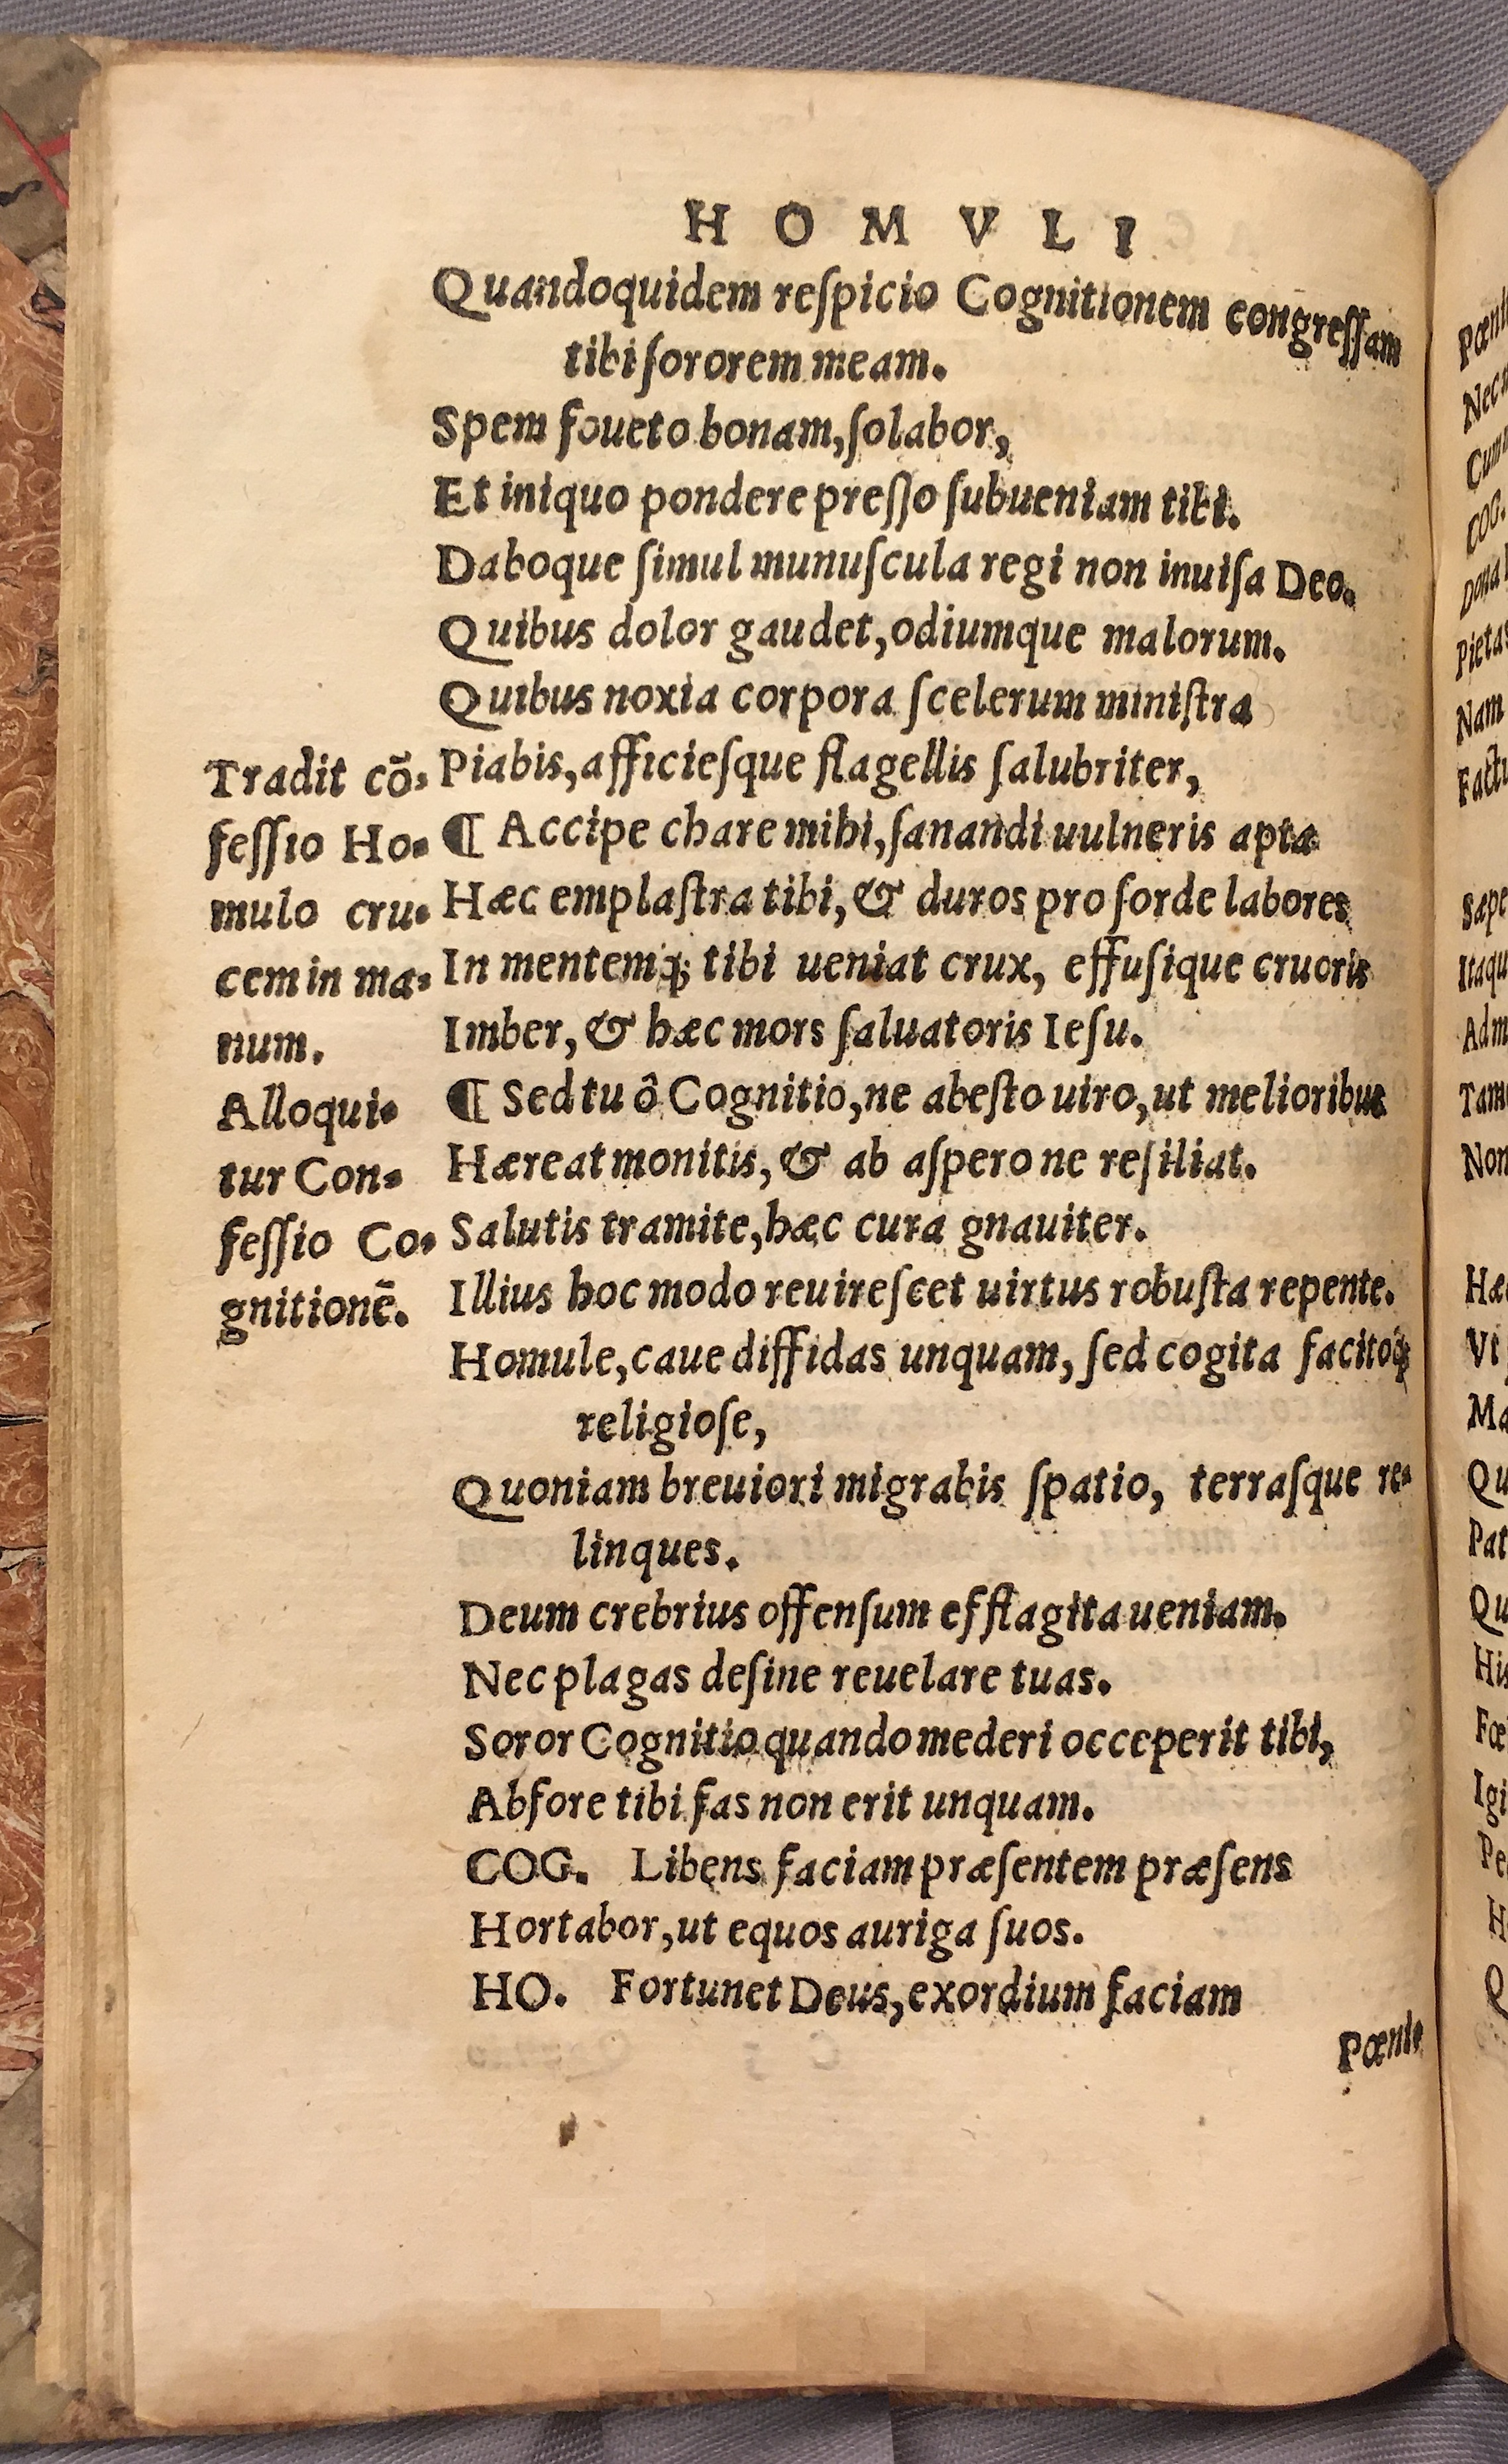 HOMVLI
Quandoquidem reſpicio Cognitionem congreſſam
tibi ſororem meam.
Spem foueto bonam, ſolabor,
Et iniquo pondere preſſo ſubueniam tibi.
Daboque ſimul munuſcula regi non inuiſa Deo.
Quibus dolor gaudet, odiumque malorum.
Quibus noxia corpora ſcelerum miniſtra
Piabis, afficieſque flagellis ſalubriter,
¶ Accipe chare mihi, ſanandi uulneris apta
Hæc emplaſtra tibi, & duros pro ſorde labores
In mentemq; tibi ueniat crux, effuſique cruoris
Imber, & hæc mors ſaluatoris Ieſu.
¶ Sed tu ô Cognitio, ne abeſto uiro, ut melioribus
Hæreat monitis, & ab aſpero ne reſiliat.
Salutis tramite, hæc cura gnauiter.
Illius hoc modo reuireſcet uirtus robuſta repente.
Homule, caue diffidas unquam, ſed cogita facitoq;
religioſe,
Quoniam breuiori migrabis ſpatio, terraſque re-
linques.
Deum crebrius offenſum efflagita ueniam.
Nec plagas deſine reuelare tuas.
Soror Cognitio quando mederi occeperit tibi,
Abfore tibi fas non erit unquam.
COG. Libens faciam præſentem præſens
Hortabor, ut equos auriga ſuos.
HO. Fortunet Deus, exordium faciam
Pœnle
Tradit cõ-
feſſio Ho-
mulo cru-
cem in ma-
num.
Alloqui-
tur Con-
feſſio Co-
gnitionẽ.
Nec
COG.
Dona
Pietas
Nam
Factu
Sæpe
Itaqu
Adm
Tam
Non
Hæ
Vt
Ma
Qu
Pat
Qu
His
Fœ
Igi
Pe
H
Q